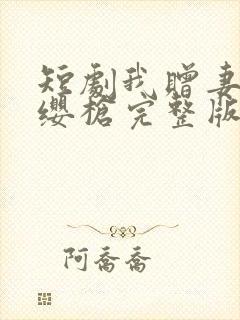 短劇我贈妻
纓槍完整版
阿喬喬